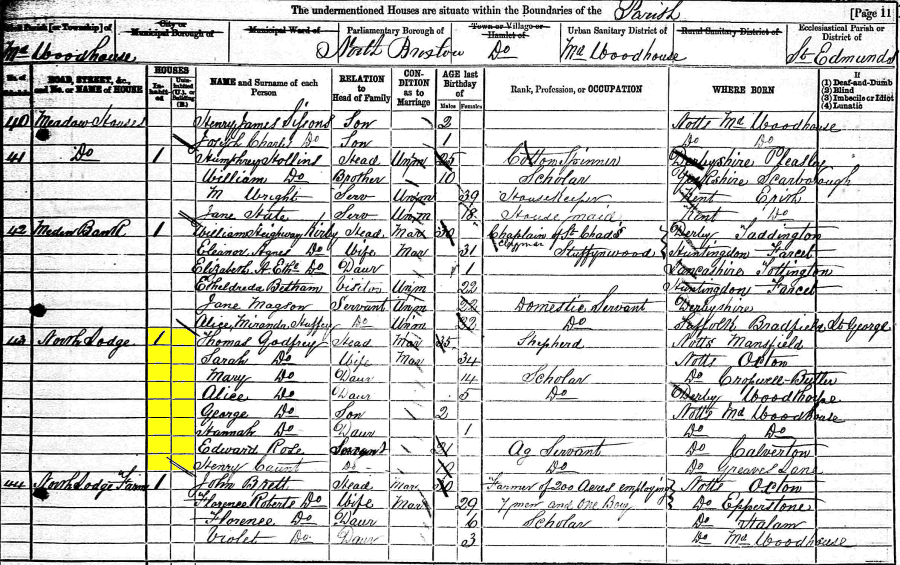 The undermentioned Houses are situate within the Boundaries of the Parish [Page 11
Parish [or Township] of City or Municipal Borough of Municipal Ward of Parliamentary Borough of Town or Village or Hamlet of Urban Sanitary District of Rural Sanitary District of Ecclesiastical Parish or District of
Md Woodhouse North Do Md Woodhouse St Edmunds
ROAD, STREET, &c., and No. or NAME of HOUSE HOUSES Inhabited Uninhabited (U.), or Building (B.) NAME and Surname of each Person RELATION to Head of Family CONDITION as to Marriage AGE last Birthday of Males Females Rank, Profession, or OCCUPATION WHERE BORN If (1) Deaf-and-Dumb (2) Blind (3) Imbecile or Idiot (4) Lunatic
40 Meadow House Henry James Sissons Son 2 Notts Md Woodhouse
Joseph Charles Do Son 1 Do Do
41 Do 1 Humphrey Hollins Head Unm 25 Cotton Spinner Derbyshire Pleasley
William Do Brother 10 Scholar Yorkshire Scarborough
M Wright Serv Unm 39 Housekeeper Kent Erith
Jane Serv Unm 18 House maid Kent Do
42 Meden Bank 1 William Heighway Kirby Head Mar 30 Chaplain of St Chads Derby Taddington
Eleanor Agnes Do Wife Mar 31 Stuffynwood Huntingdon Farcet
Elizabeth Do Daur 1 Lancashire Tottington
Etheldreda Betham Visitor Unm 22 Huntingdon Farcet
Jane Magson Servant Unm 22 Domestic Servant Derbyshire
Alice Miranda Do Unm 22 Do Suffolk Bradfield St George
43 North Lodge 1 Thomas Godfrey Head Mar 35 Shepherd Notts Mansfield
Sarah Do Wife Mar 34 Notts Oxton
Mary Do Daur 14 Scholar Do Cropwell Butler
Alice Do Daur 5 Do Derby Woodthorpe
George Do Son 2 Notts Md Woodhouse
Hannah Do Daur 1 Do Do
Edward Rose Servant 21 Ag Servant Do Calverton
Henry Caunt Do Do Do Greaves Lane
44 North Lodge Farm 1 John Brett Head Mar 30 Farmer of 200 Acres employing Notts Oxton
Florence Roberts Do Wife Mar 29 7 men and One Boy Do Epperstone
Florence Do Daur 6 Scholar Do Halam
Violet Do Daur 3 Do Md Woodhouse